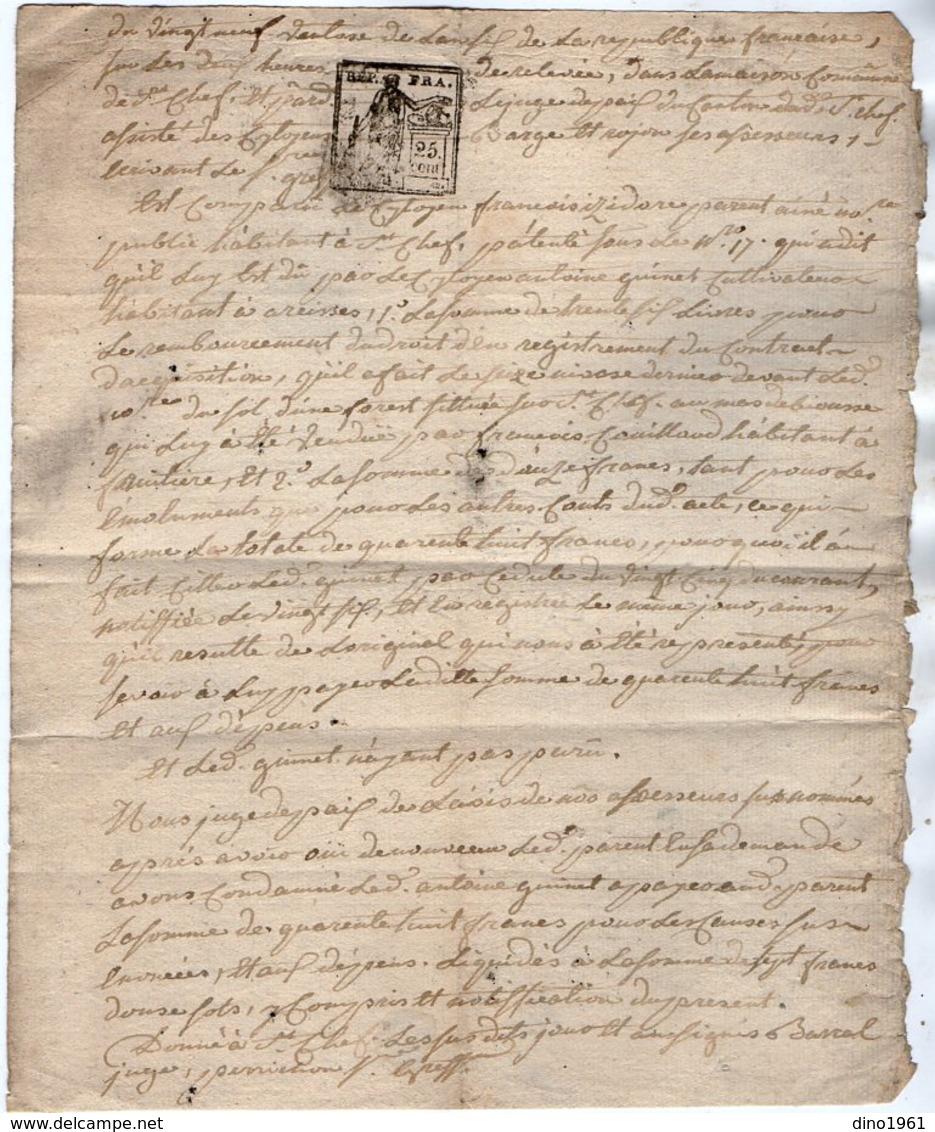 du vingt neuf ventose de l'an six de la republique francaise,
sur les deux heures de relevée, dans la maison Comûne
de St Chef, et pard le juge de paix du Canton dud. St. chef.
assisté des Citoyens Barge et rojon ses assesseurs,
Ecrivant le s. gref
REP. FRA.
25.
cent
Est Comparu le Citoyen francois izidore parent ainé no.re
public habitant à St. Chef, patenté sous le Nro. 17. qui a dit
qu'il luy est dû par le Citoyen antoine guinet Cultivateur
habitant à arcisses, 1.o la somme de trente six livres pour
le rembourcement du droit d'En registrement du Contract
d'acquisition, qu'il a fait le seize nivose dernier devant led.
no.re du sol d'une forest sittuée sur St. Chef au mas de biousse
qui luy à été venduë par francois Couilloud habitant à
et 2.o la somme de douze francs, tant pour les
Emoluments que pour les autres Couts dud. acte, ce qui
forme la totale de quarente huit francs, pour quoi il à
fait Citter led. guinet par Cedule du vingt Cinq du courant,
nottiffiée le vingt six, et En registrée le même jour, ainssy
qu'il resulte de l'original qui nous à été representé, pour
se voir à luy payer la ditte somme de quarente huit francs
et aux dépens.
Et led. guinet n'ayant pas paru.
Nous juge de paix de l'avis de nos assesseurs susnommés
après avoir oüi de nouveau led. parent En sa demande
avons Condamné led. antoine guinet a payer aud. parent
la somme de quarente huit francs pour les Causes sus
Enoncées, et aux dépens. Liquidés à la somme de sept francs
douse sols, y Compris et nottiffication du present.
Donné à St. Chef les susdits jour et an signés Barral
juge, perrichon s. Greff.
dino1961